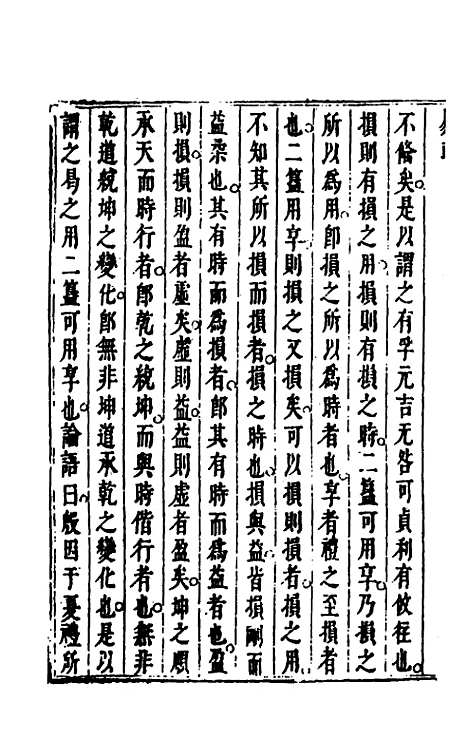 不脩矣是以謂之有孚元吉无咎可貞利有攸往也
損則有損之用損則有損之時二簋可用享乃損之
所以為用即損之所以為時者也享者禮之至損者
也二簋用享則損之又損矣可以損則損者損之用
不知其所以損而損者損之時也損與益皆損剛而
益柔也其有時而為損者即其有時而為益者也盈
則損損則盈者虛矣虛則益益則虛者盈矣坤之順
承天而時行者即乾之統坤而與時偕行者也無非
乾道統坤之變化即無非坤道承乾之變化也是以
謂之曷之用二簋可用享也論語曰殷因于夏禮所